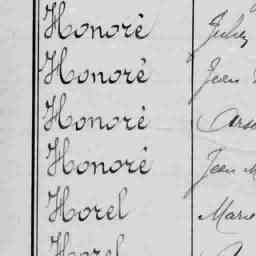 Honoré Jules
Honoré Jean
Honoré
Honoré Jean M
Horel Marie
Horel